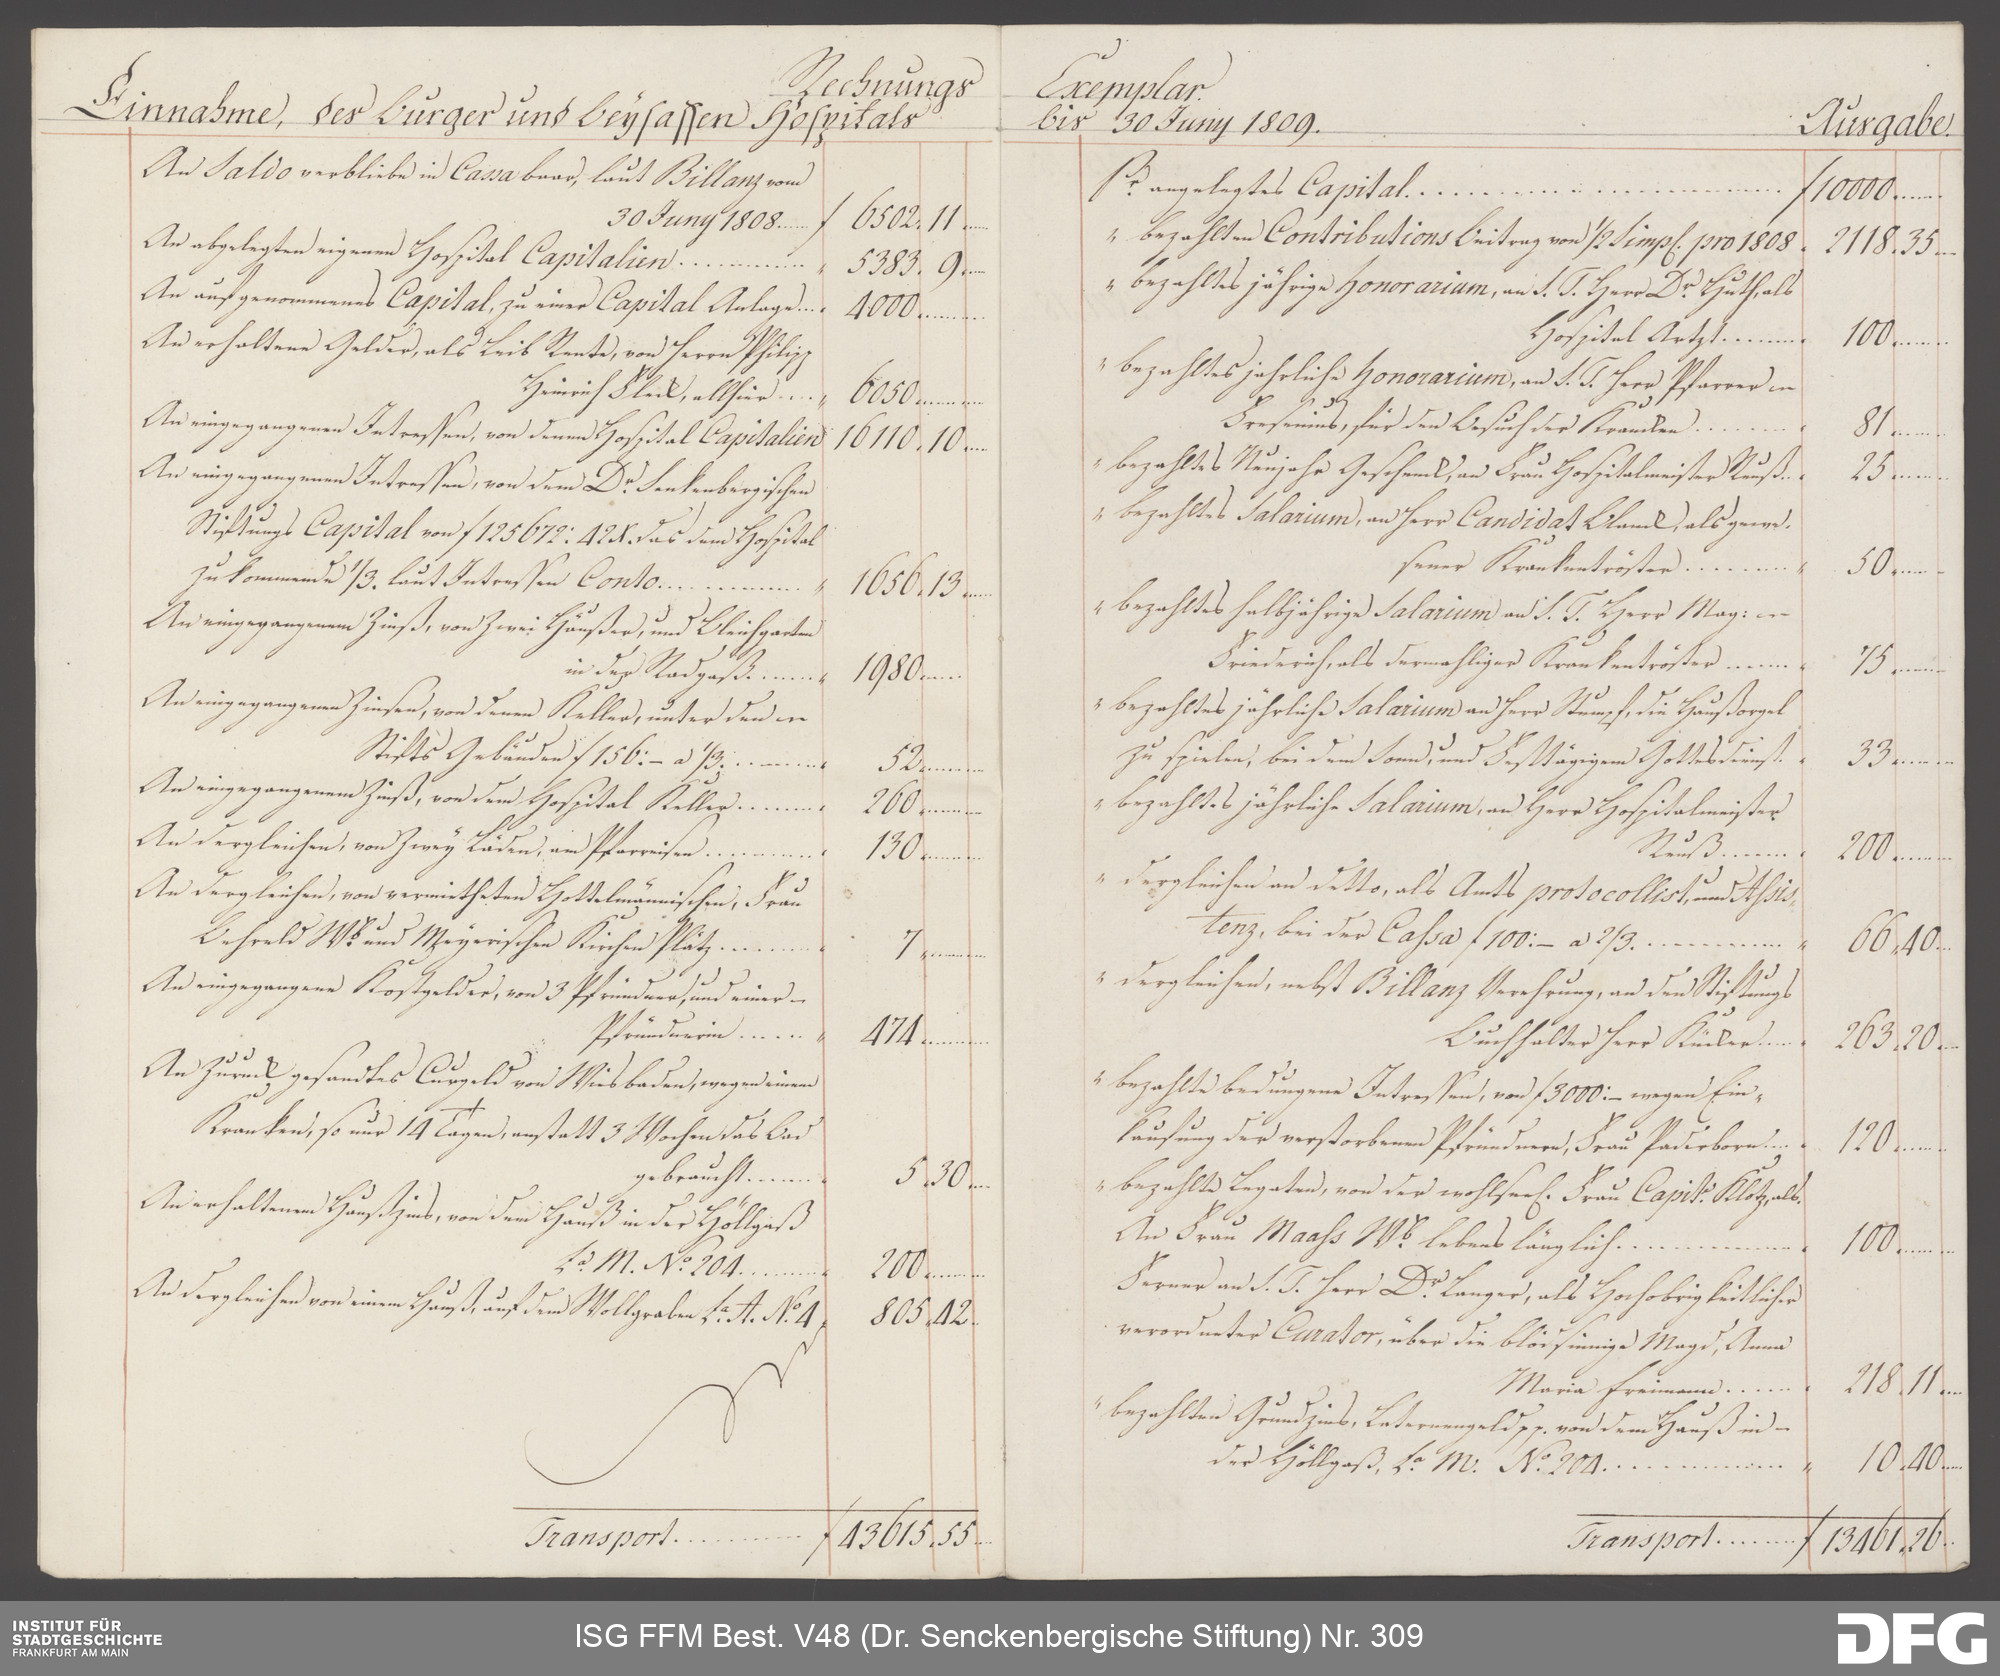 Rechnungs
Einnahme, des burger und beysassen Hospitals
An Saldo verbliebe in Cassa baar, laut Billanz vom
30 Juny 1808. f 6502. 11
An abgelegten eigenen Hospital Capitalien 5383. 9
An aufgenommenes Capital, zu einer Capital Anlage 4000
An erhaltene Gelder, als Leib Rente, von Herrn Philipp
Heinrich Fleck, allhier 6050
An eingegangenen Intressen, von denen Hospital Capitalien 16110. 10
An eingegangenen Intressen, von dem Dr. Senkenbergischen
Stiftungs Capital von f 125672: 42 X. das dem Hospital
zu kommende 1/3. laut Intressen Conto 1656. 13
An eingegangenem Zinß, von Zwei Häußer, und Bleichgarten
in der Radgaß 1980
An eingegangenen Zinsen, von denen Keller, unter den
Stifts Gebäuden f 156:– a 1/3. 52
An eingegangenem Zinß, von dem Hospital Keller 260
An dergleichen, von Zwey Läden, am Pfarreisen 130
An dergleichen, von vermietheten Hottelmännischen, Frau
Behrels Wb. und Meyerischen Kirchen Plätz 7
An eingegangene Kostgelder, von 3 Pfründner, und einer
Pfründnerin 474
An Zuruck gesandtes Curgeld von Wiesbaden, wegen einem
Kranken, so nur 14 Tagen, anstatt 3 Wochen das Bad
gebraucht 5. 30
An erhaltenem Haußzins, von dem Hauß in der Höllgaß
La. M. No. 204 200
An dergleichen von einem Hauß, auf dem Wollgraben La. A. No. 4 805. 42
Transport f 43615. 55
Exemplar.
bis 30 Juny 1809. Ausgabe.
Pr. angelegtes Capital f 10000
" bezahlten Contributions beitrag von 1/2 Simpl. pro 1808 2118. 35
" bezahltes jährige Honorarium, an S. T. Herr Dr. Huth, als
Hospital Artzt 100
" bezahltes jahrliche Honorarium, an S. T. Herr Pfarrer
Fresenius, für den Besuch der Krancken 81
" bezahltes Neujahr Geschenck, an Frau Hospitalmeister Reuß 25
" bezahltes Salarium, an Herr Candidat Blanck, als gewe-
sener Krankentröster 50
" bezahltes halbjährige Salarium an S. T. Herr Mag:
Friederich, als dermahliger Krankentröster 75
" bezahltes jährliche Salarium an Herr Stumpf, die Haußorgel
zu spielen, bei dem Sonn, und Festtägigem Gottesdienst 33
" bezahltes jährliche Salarium, an Herr Hospitalmeister
Reuß 200
" dergleichen an detto, als Amts protocollist, und Assis-
tenz, bei der Cassa f 100:– a 2/3. 66. 40
" dergleichen, nebst Billanz Verehrung, an den Stiftungs
Buchhalter Herr Küchler 263. 20
" bezahlte bedungene Intressen, von f 3000:– wegen Ein-
kaufung der verstorbenen Pfründnern, Frau Paderborn 120
" bezahlte Legaten, von der wohlseel. Frau Capit. Klotz, als.
An Frau Maass Wb. lebens länglich 100
Ferner an S. T. Herr Dr. Langer, als Hochobrigkeitlicher
verordneter Curator, über die blödsinnige Magd, Anna
Maria Freimann 218. 11
" bezahlten Grundzins, Laternengeld pp. von dem Hauß in
der Höllgaß, La. M. No. 204 10. 40
Transport f 13461. 26
INSTITUT FÜR
STADTGESCHICHTE
FRANKFURT AM MAIN
ISG FFM Best. V48 (Dr. Senckenbergische Stiftung) Nr. 309
DFG